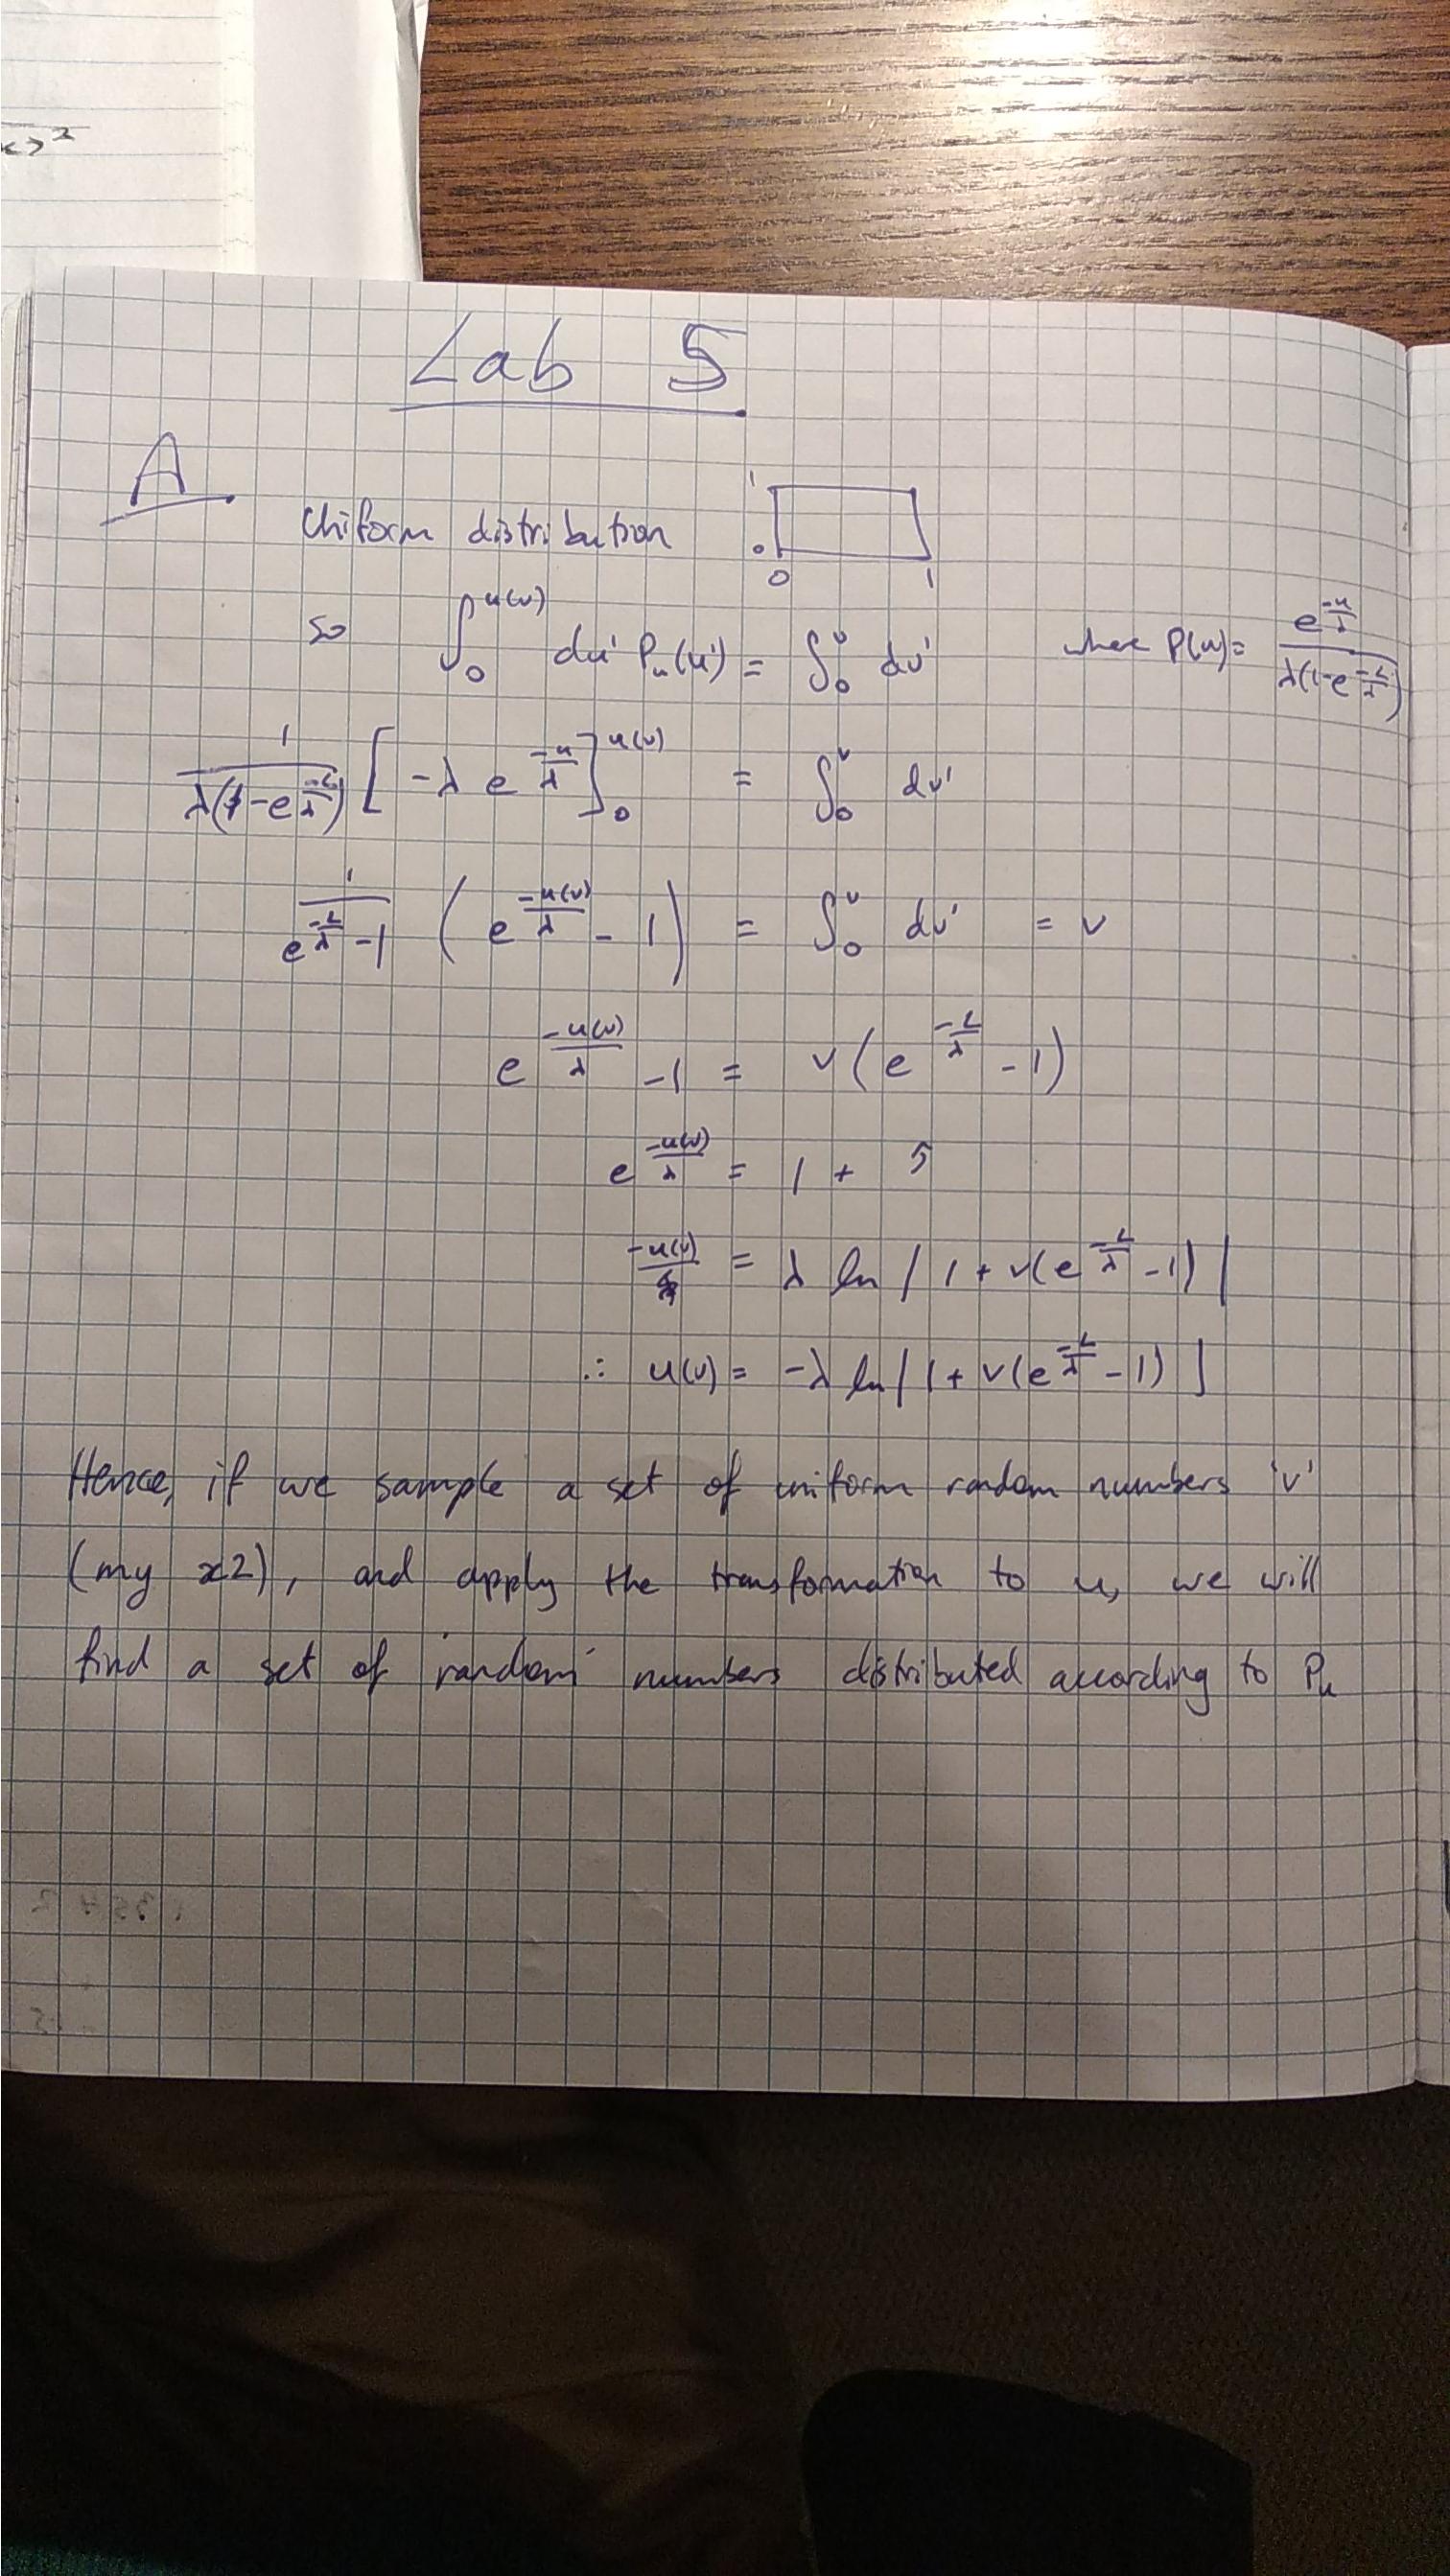 x>²
Lab 5
A
Uniform distribution 1 0 0 1
so ∫₀^{u(v)} du' Pᵤ(u') = ∫₀^v dv' where P(u) = e^{-u/λ} / λ(1-e^{-L/λ})
1/λ(1-e^{-L/λ}) [-λ e^{-u/λ}]₀^{u(v)} = ∫₀^v dv'
1/(e^{-L/λ}-1) (e^{-u(v)/λ} - 1) = ∫₀^v dv' = v
e^{-u(v)/λ} -1 = v(e^{-L/λ} -1)
e^{-u(v)/λ} = 1 +
-u(v) = λ ln | 1 + v(e^{-L/λ} -1) |
∴ u(v) = -λ ln | 1 + v(e^{-L/λ} - 1) |
Hence, if we sample a set of uniform random numbers 'v'
(my x2), and apply the transformation to u, we will
find a set of 'random' numbers distributed according to Pᵤ